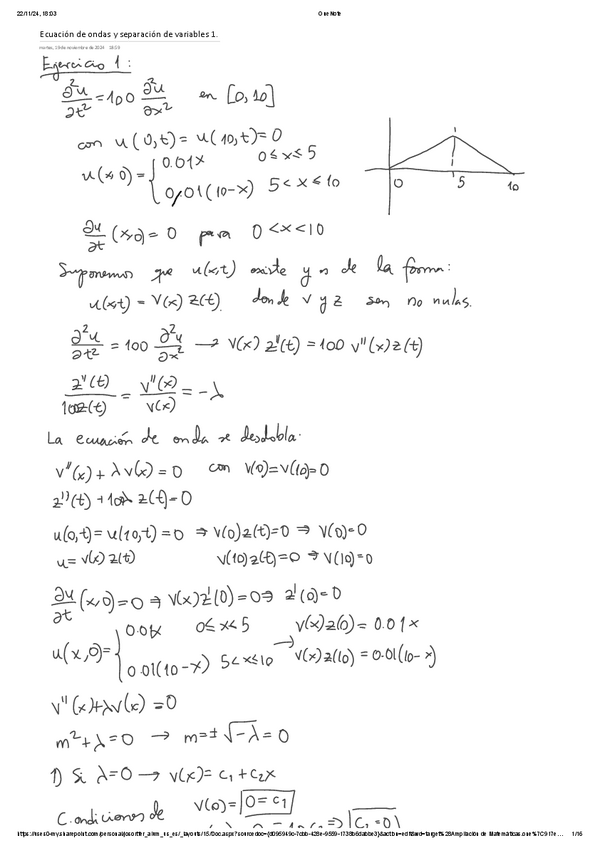 22/11/24, 18:03 OneNote
Ecuación de ondas y separación de variables 1.
martes, 19 de noviembre de 2024 18:03
Ejercicio 1:
∂²u/∂t² = 100 ∂²u/∂x² en [0,10]
con u(0,t) = u(10,t) = 0
u(x,0) = { 0.01x 0≤x≤5
0,01(10-x) 5<x≤10
0 5 10
∂u/∂t (x,0) = 0 para 0<x<10
Suponemos que u(x,t) existe y es de la forma:
u(x,t) = V(x) z(t). donde v y z son no nulas.
∂²u/∂t² = 100 ∂²u/∂x² → V(x) z''(t) = 100 v''(x) z(t)
z''(t)/100z(t) = v''(x)/v(x) = -λ
La ecuación de onda se desdobla:
v''(x) + λv(x) = 0 con v(0)=v(10)=0
z''(t) + 100λ z(t) = 0
u(0,t) = u(10,t) = 0 ⇒ v(0)z(t)=0 ⇒ v(0)=0
u = v(x) z(t) v(10)z(t)=0 ⇒ v(10)=0
∂u/∂t (x,0) = 0 ⇒ v(x)z'(0)=0 ⇒ z'(0)=0
u(x,0) = { 0.01x 0≤x≤5 → v(x)z(0) = 0.01x
0.01(10-x) 5<x≤10 v(x)z(10) = 0.01(10-x)
v''(x)+λv(x) = 0
m²+λ=0 → m=±√-λ = 0
1) Si λ=0 → v(x) = c₁ + c₂x
Condiciones de v(0) = 0 = c₁